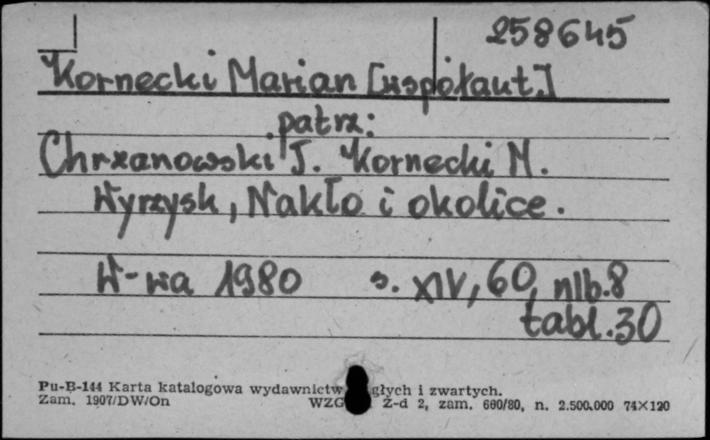 258645
Kornecki Marian [współaut.]
patrz:
Chrzanowski T. Kornecki M.
Wyrzysk, Nakło i okolice.
W-wa 1980 s. XIV, 60, nlb. 8
tabl. 30
Pu-B-144 Karta katalogowa wydawnictw głych i zwartych.
Zam. 1907/DW/On WZG Z-d 2, zam. 660/80, n. 2.500.000 74×120